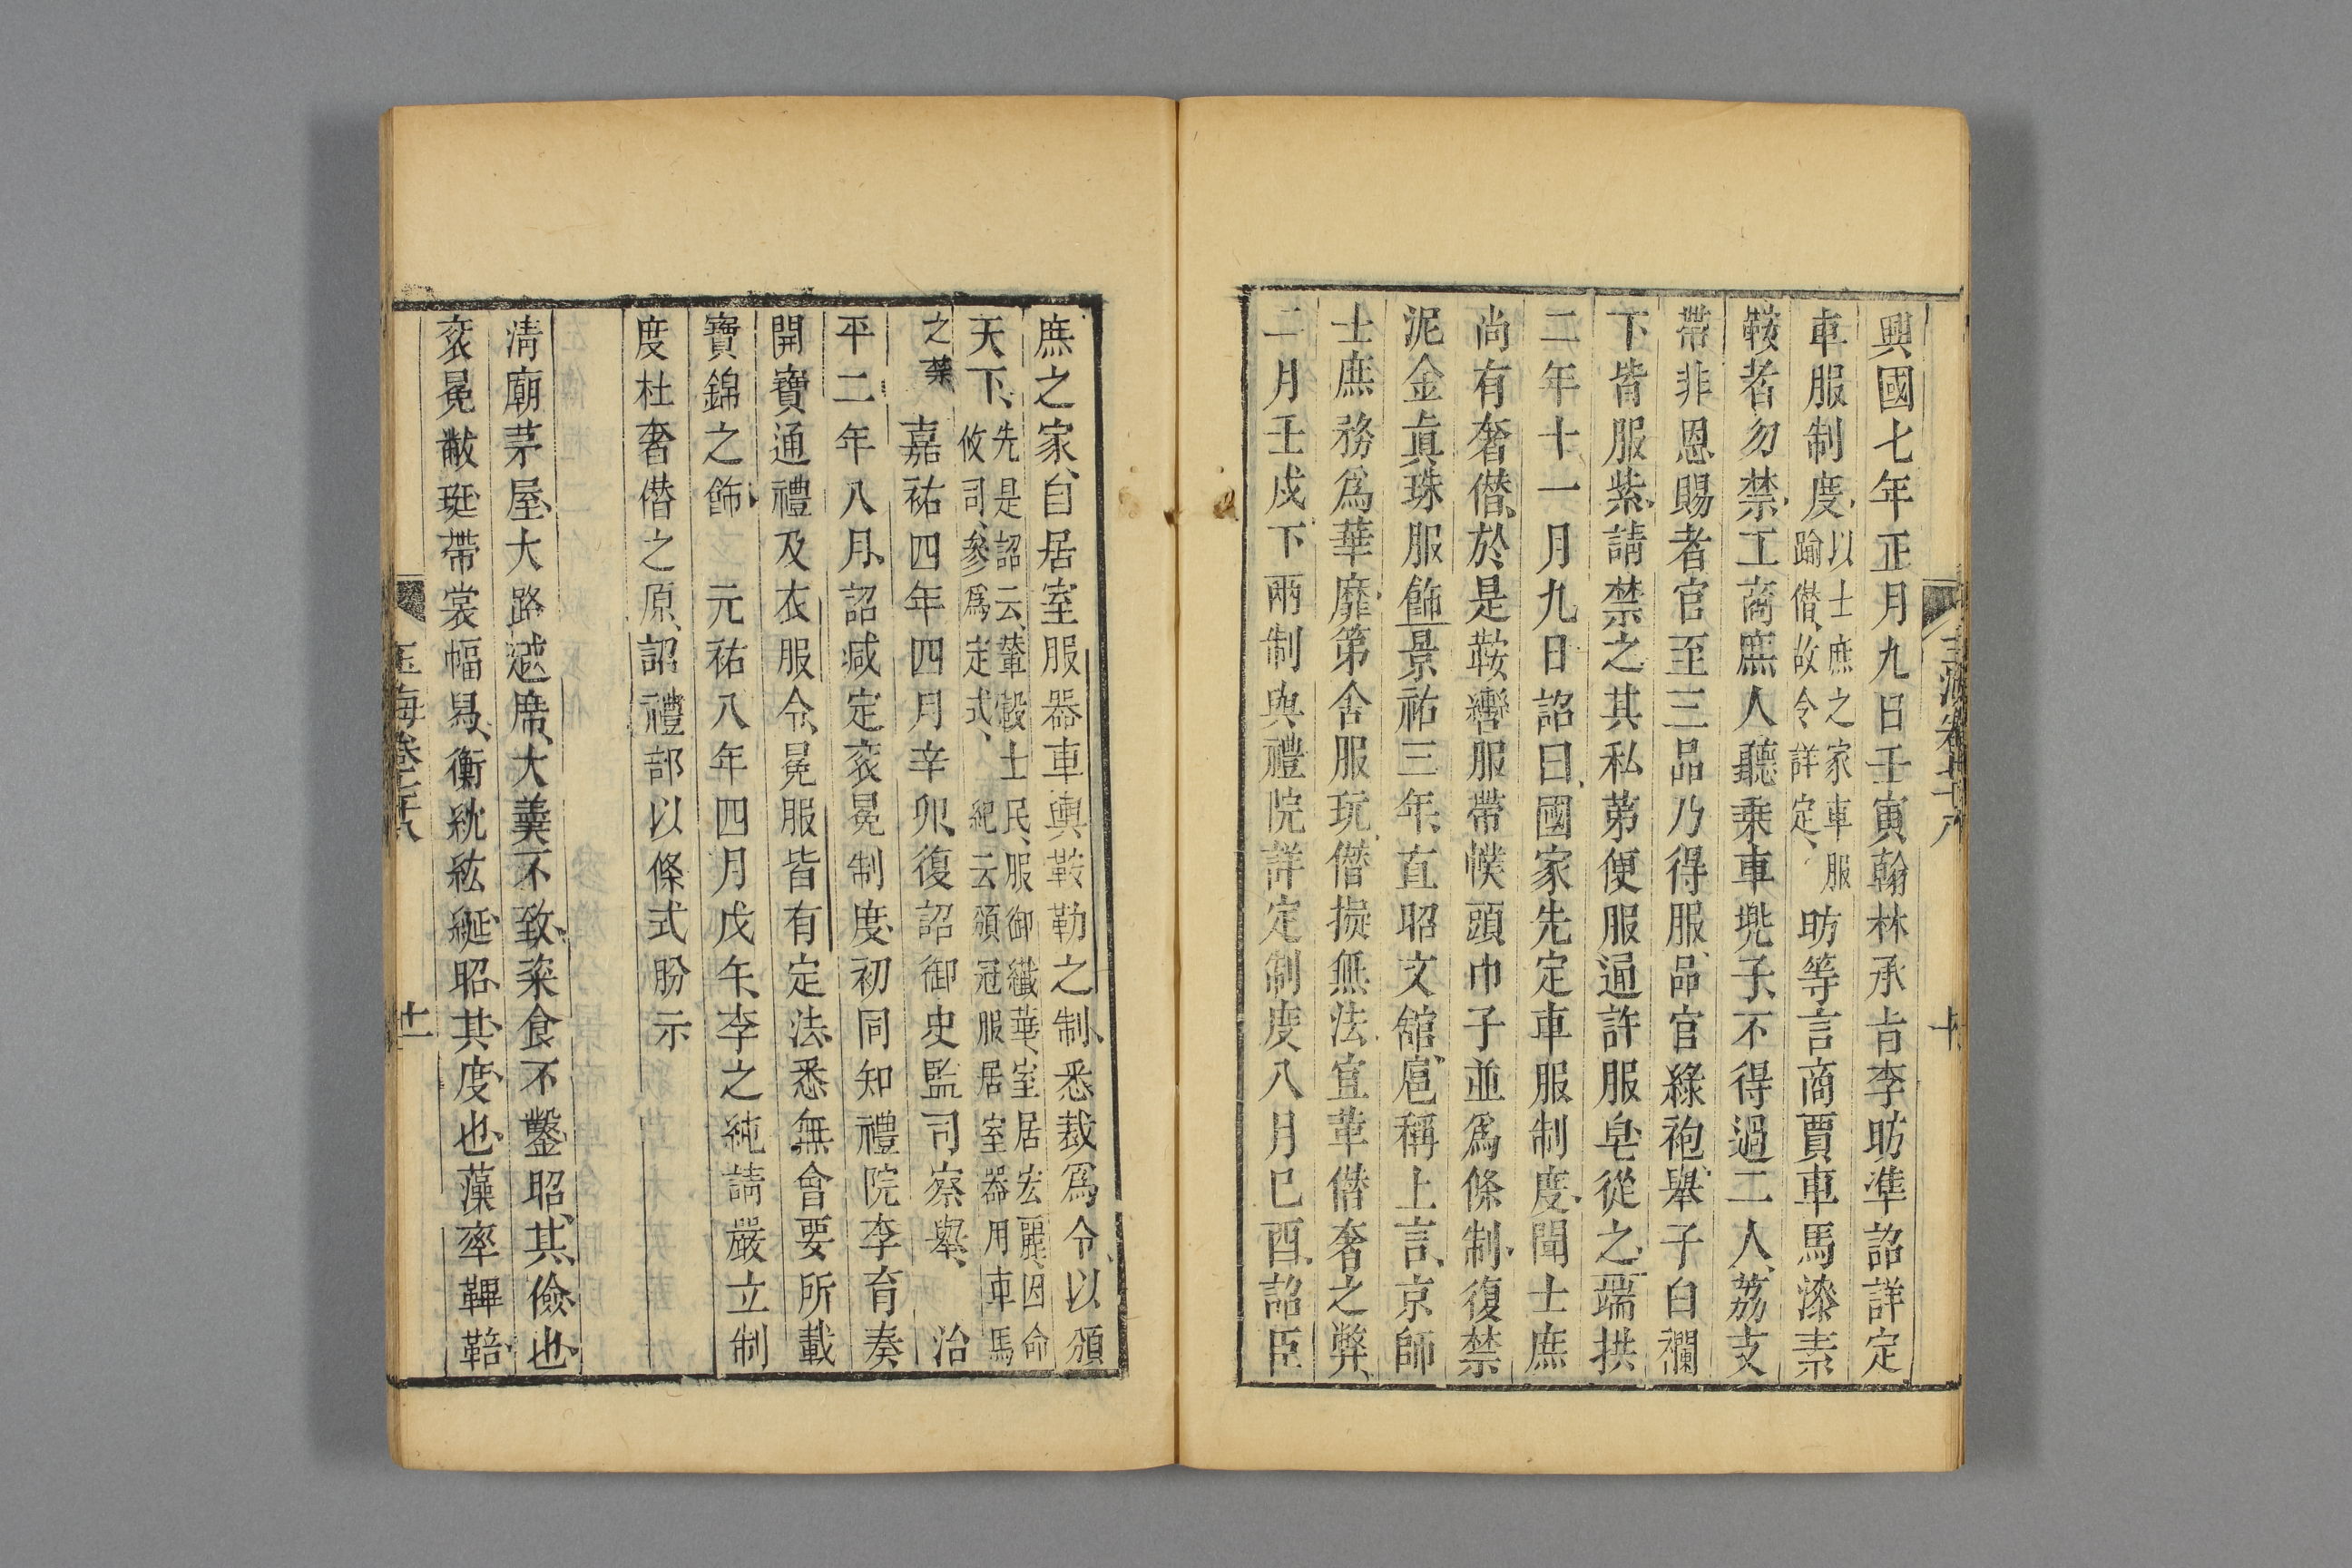 興國七年正月九日壬寅翰林承㫖李昉準詔詳定
車服制度以士庶之家車服踰僣故令詳定昉等言商賈車馬漆素
鞍者勿禁工商庶人聽乗車兠子不得過二人荔支
帶非恩賜者官至三品乃得服品官綠袍舉子白襴
下皆服紫請禁之其私第便服通許服皂從之端拱
二年十一月九日詔曰國家先定車服制度聞士庶
尚有奢僣於是鞍轡服帶幞頭巾子並爲條制復禁
泥金真珠服飾景祐三年直昭文舘扈稱上言京師
士庶務爲華靡第舍服玩僣擬無法宜革僣奢之弊
二月壬戌下兩制與禮院詳定制度八月巳酉詔臣
庶之家自居室服器車輿鞍勒之制悉裁爲令以頒
天下先是詔云輦轂士民服御纖華室居宏麗因命攸司參爲定式紀云頒冠服居室器用車馬
之禁嘉祐四年四月辛卯復詔御史監司察舉治
平二年八月詔减定衮冕制度初同知禮院李育奏
開寶通禮及衣服令冕服皆有定法悉無會要所載
寶錦之飾元祐八年四月戊午李之純請嚴立制
度杜奢僣之原詔禮部以條式肹示
清廟茅屋大路越席大羹不致粢食不鑿昭其儉也
衮冕黻珽帶裳幅舄衡紞紘綖昭其度也藻率鞸鞛
玉海卷七十八
十一